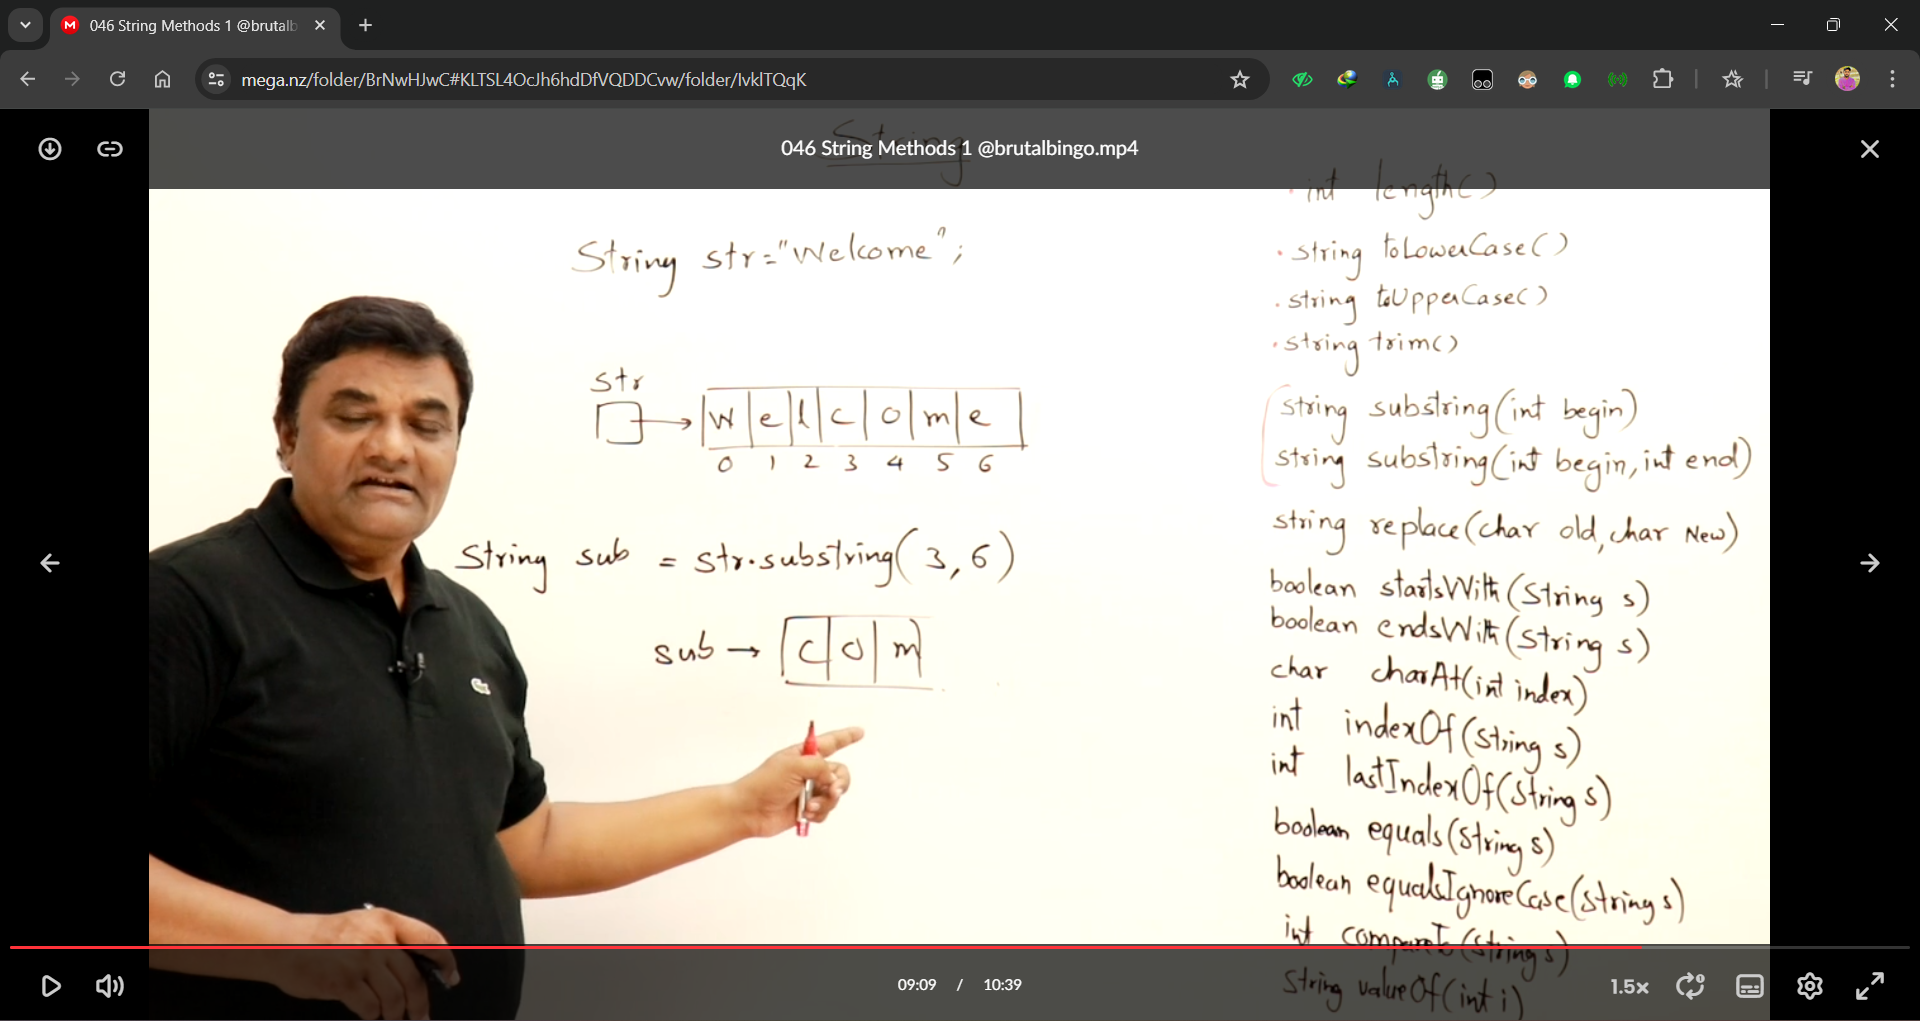 046 String Methods 1 @brutalb
mega.nz/folder/BrNwHJwC#KLTSL4OcJh6hdDfVQDDCvw/folder/IvklTQqK
String
046 String Methods 1 @brutalbingo.mp4
String str="Welcome";
str
W e l c o m e
0 1 2 3 4 5 6
String sub = str.substring(3,6)
sub → c o m
· int length()
· string toLowerCase()
· string toUpperCase()
· string trim()
string substring(int begin)
string substring(int begin, int end)
string replace(char old, char New)
boolean startsWith(String s)
boolean endsWith(String s)
char charAt(int index)
int indexOf(String s)
int lastIndexOf(String s)
boolean equals(String s)
boolean equalsIgnoreCase(String s)
int compareTo(String s)
String valueOf(int i)
09:09 / 10:39
1.5x